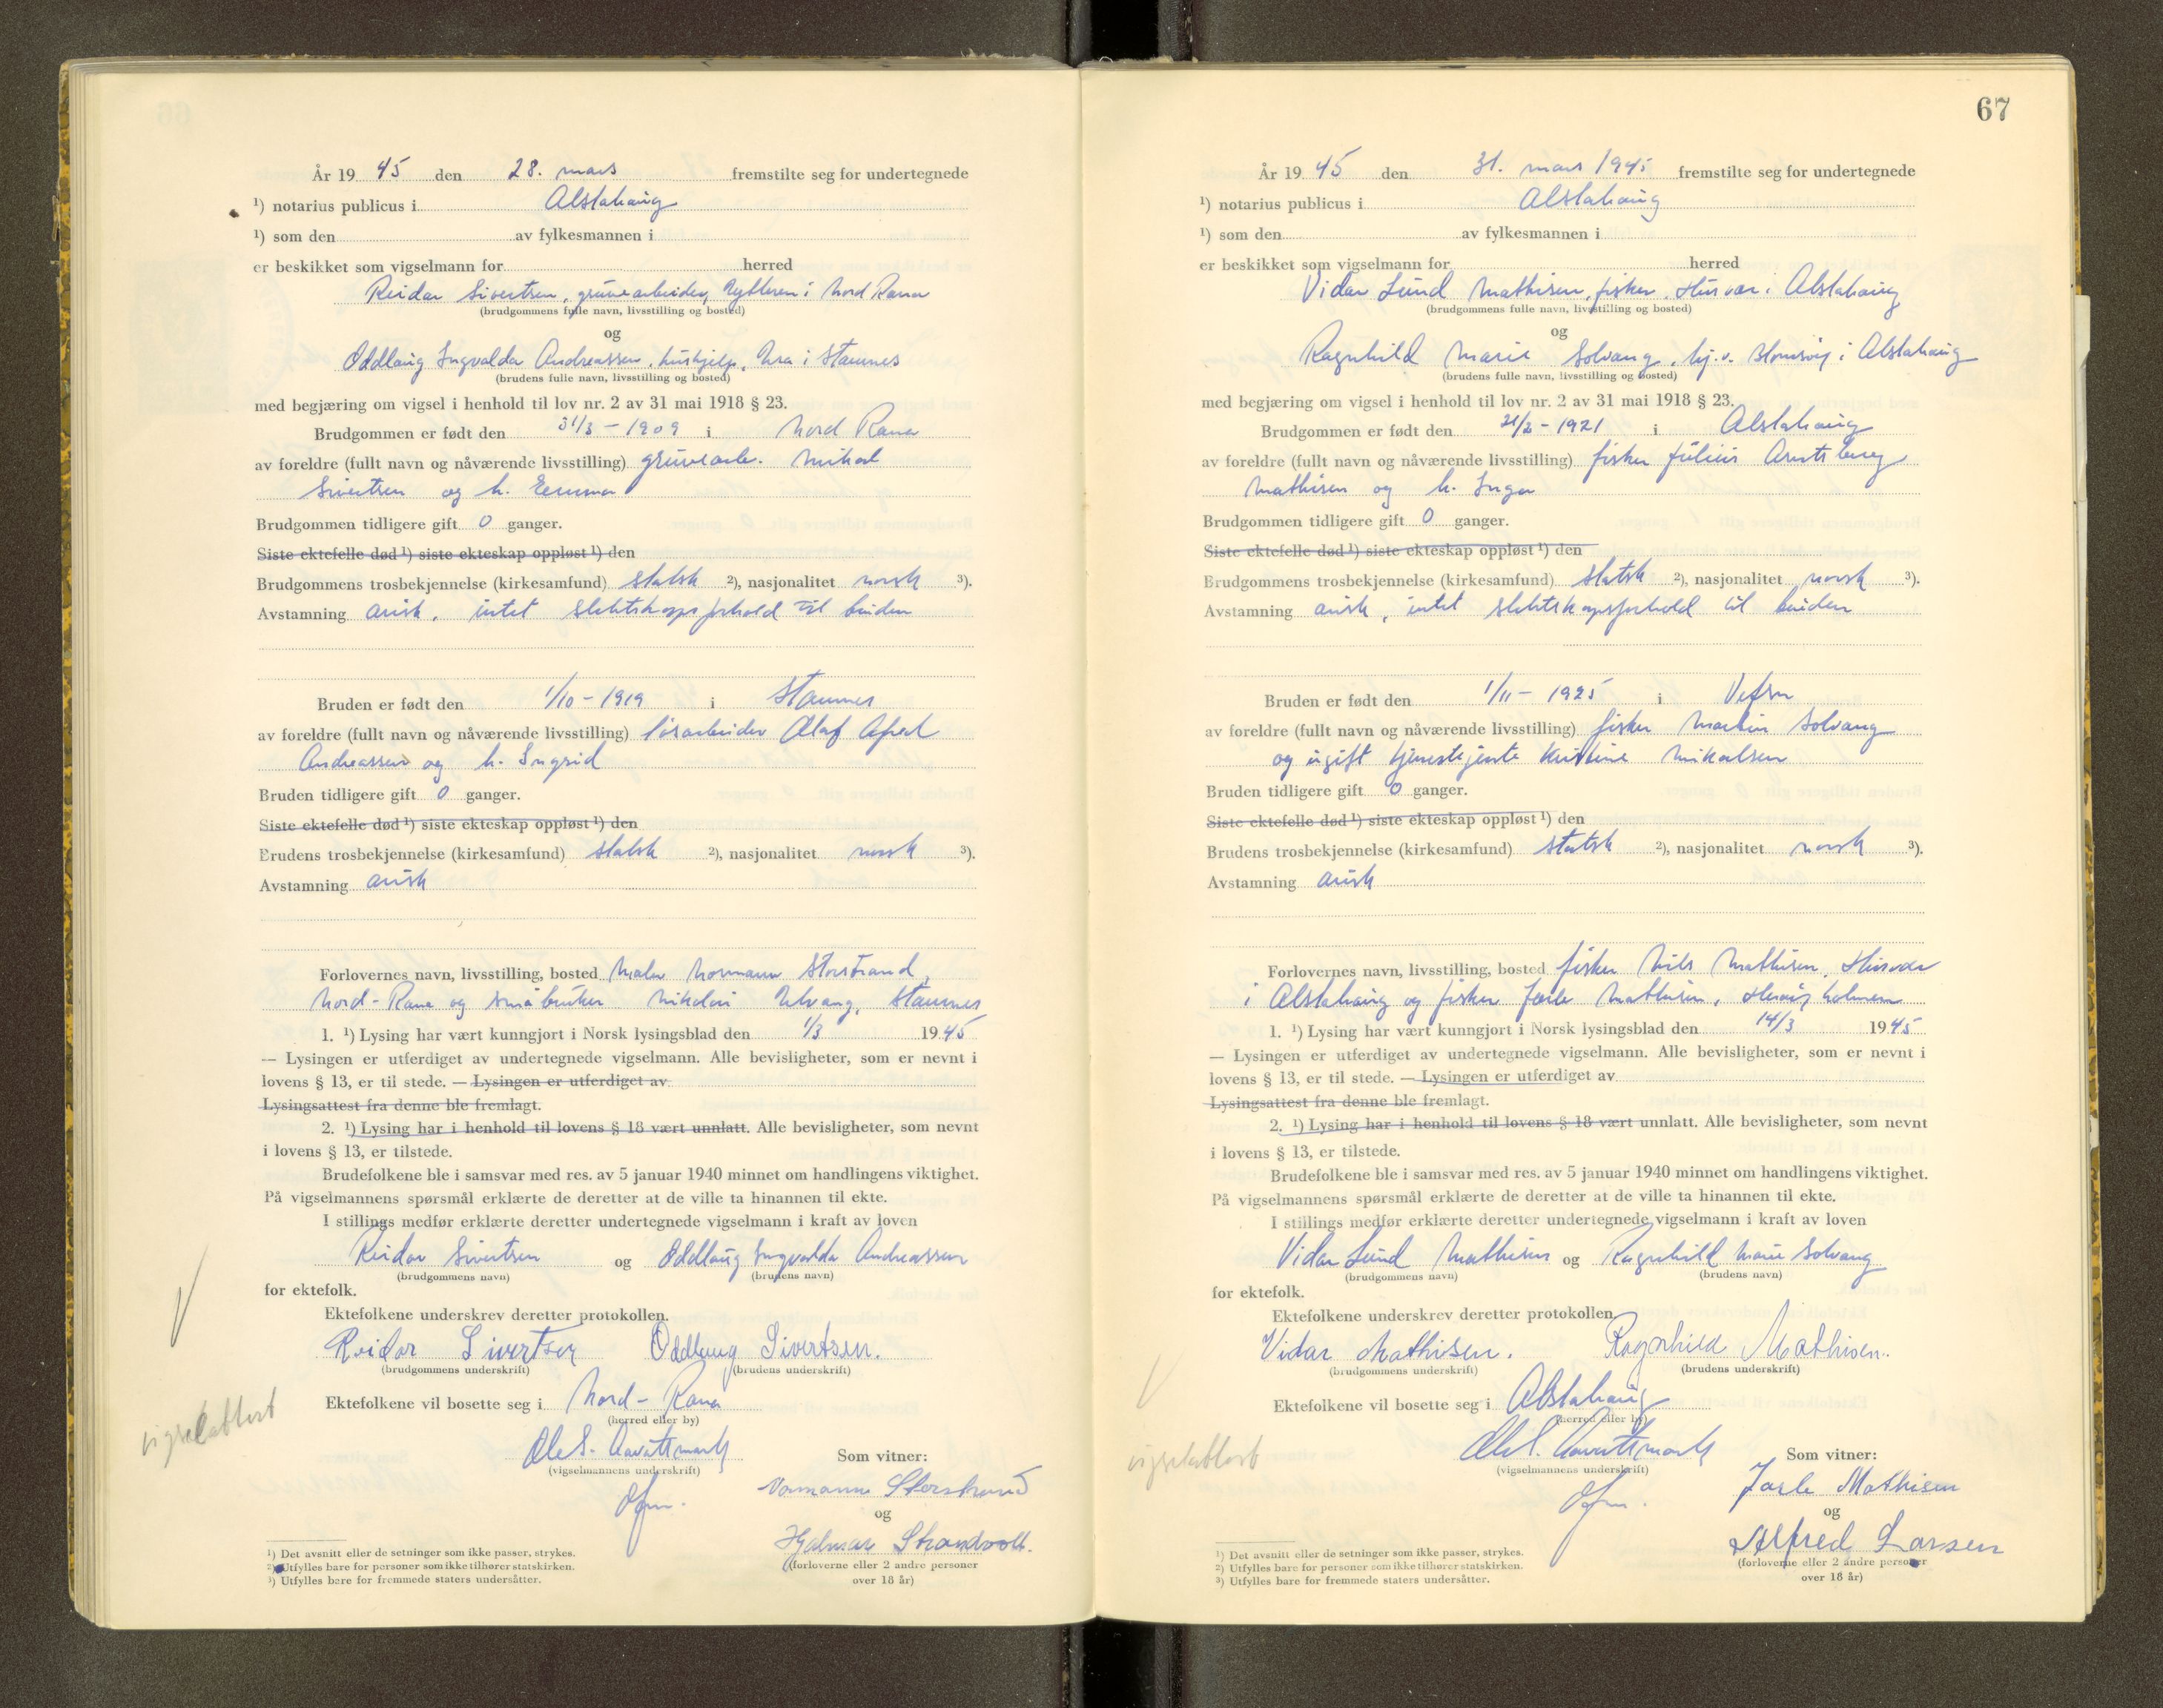 År 1945 den 28. mars fremstilte seg for undertegnede
¹) notarius publicus i Alstahaug
¹) som den av fylkesmannen i
er beskikket som vigselmann for herred
Reidar Sivertsen, gruvearbeider, i Nord Rana
(brudgommens fulle navn, livsstilling og bosted)
og
Oddlaug Ingvalda Andreassen, hushjelp, i Stamnes
(brudens fulle navn, livsstilling og bosted)
med begjæring om vigsel i henhold til lov nr. 2 av 31 mai 1918 § 23.
Brudgommen er født den 31/3 - 1909 i Nord Rana
av foreldre (fullt navn og nåværende livsstilling) gruvearb. Mikal
Sivertsen og h. Emma
Brudgommen tidligere gift 0 ganger.
Siste ektefelle død ¹) siste ekteskap oppløst ¹) den
Brudgommens trosbekjennelse (kirkesamfund) statsk ²), nasjonalitet norsk ³).
Avstamning arisk, intet slektskapsforhold til bruden
Bruden er født den 1/10 - 1919 i Stamnes
av foreldre (fullt navn og nåværende livsstilling) løsarbeider Olaf
Andreassen og h. Ingrid
Bruden tidligere gift 0 ganger.
Siste ektefelle død ¹) siste ekteskap oppløst ¹) den
Brudens trosbekjennelse (kirkesamfund) statsk ²), nasjonalitet norsk ³).
Avstamning arisk
Forlovernes navn, livsstilling, bosted maler Normann Storstrand,
Nord-Rana og småbruker Nikolai Ulvang, Stamnes
1. ¹) Lysing har vært kunngjort i Norsk lysingsblad den 1/3 1945
— Lysingen er utferdiget av undertegnede vigselmann. Alle bevisligheter, som er nevnt i
lovens § 13, er til stede. — Lysingen er utferdiget av
Lysingsattest fra denne ble fremlagt.
2. ¹) Lysing har i henhold til lovens § 18 vært unnlatt. Alle bevisligheter, som nevnt
i lovens § 13, er tilstede.
Brudefolkene ble i samsvar med res. av 5 januar 1940 minnet om handlingens viktighet.
På vigselmannens spørsmål erklærte de deretter at de ville ta hinannen til ekte.
I stillings medfør erklærte deretter undertegnede vigselmann i kraft av loven
Reidar Sivertsen og Oddlaug Ingvalda Andreassen
(brudgommens navn) (brudens navn)
for ektefolk.
Ektefolkene underskrev deretter protokollen.
Reidar Sivertsen Oddlaug Sivertsen.
(brudgommens underskrift) (brudens underskrift)
Ektefolkene vil bosette seg i Nord-Rana
(herred eller by)
vigselattest
Ole S. Aavatsmark
(vigselmannens underskrift)
Som vitner:
Normann Storstrand
og
Hjalmar Strandvoll.
(forloverne eller 2 andre personer
over 18 år)
¹) Det avsnitt eller de setninger som ikke passer, strykes.
²) Utfylles bare for personer som ikke tilhører statskirken.
³) Utfylles bare for fremmede staters undersåtter.
67
År 1945 den 31. mars 1945 fremstilte seg for undertegnede
¹) notarius publicus i Alstahaug
¹) som den av fylkesmannen i
er beskikket som vigselmann for herred
Vidar Lund Mathisen, fisker, Husvær i Alstahaug
(brudgommens fulle navn, livsstilling og bosted)
og
Ragnhild Marie Solvang, hj.v. i Alstahaug
(brudens fulle navn, livsstilling og bosted)
med begjæring om vigsel i henhold til lov nr. 2 av 31 mai 1918 § 23.
Brudgommen er født den 21/2 - 1921 i Alstahaug
av foreldre (fullt navn og nåværende livsstilling) fisker Julius Arntsberg
Mathisen og h. Inga
Brudgommen tidligere gift 0 ganger.
Siste ektefelle død ¹) siste ekteskap oppløst ¹) den
Brudgommens trosbekjennelse (kirkesamfund) statsk ²), nasjonalitet norsk ³).
Avstamning arisk, intet slektskapsforhold til bruden
Bruden er født den 1/11 - 1925 i Vefsn
av foreldre (fullt navn og nåværende livsstilling) fisker Martin Solvang
og ugift tjenestejente Kristine Mikalsen
Bruden tidligere gift 0 ganger.
Siste ektefelle død ¹) siste ekteskap oppløst ¹) den
Brudens trosbekjennelse (kirkesamfund) statsk ²), nasjonalitet norsk ³).
Avstamning arisk
Forlovernes navn, livsstilling, bosted fisker Nils Mathisen, Husvær
i Alstahaug og fisker Jarle Mathisen,
1. ¹) Lysing har vært kunngjort i Norsk lysingsblad den 14/3 1945
— Lysingen er utferdiget av undertegnede vigselmann. Alle bevisligheter, som er nevnt i
lovens § 13, er til stede. — Lysingen er utferdiget av
Lysingsattest fra denne ble fremlagt.
2. ¹) Lysing har i henhold til lovens § 18 vært unnlatt. Alle bevisligheter, som nevnt
i lovens § 13, er tilstede.
Brudefolkene ble i samsvar med res. av 5 januar 1940 minnet om handlingens viktighet.
På vigselmannens spørsmål erklærte de deretter at de ville ta hinannen til ekte.
I stillings medfør erklærte deretter undertegnede vigselmann i kraft av loven
Vidar Lund Mathisen og Ragnhild Marie Solvang
(brudgommens navn) (brudens navn)
for ektefolk.
Ektefolkene underskrev deretter protokollen.
Vidar Mathisen. Ragnhild Mathisen.
(brudgommens underskrift) (brudens underskrift)
Ektefolkene vil bosette seg i Alstahaug
(herred eller by)
vigselattest
Ole S. Aavatsmark
(vigselmannens underskrift)
Som vitner:
Jarle Mathisen
og
Alfred Larsen
(forloverne eller 2 andre personer
over 18 år)
¹) Det avsnitt eller de setninger som ikke passer, strykes.
²) Utfylles bare for personer som ikke tilhører statskirken.
³) Utfylles bare for fremmede staters undersåtter.